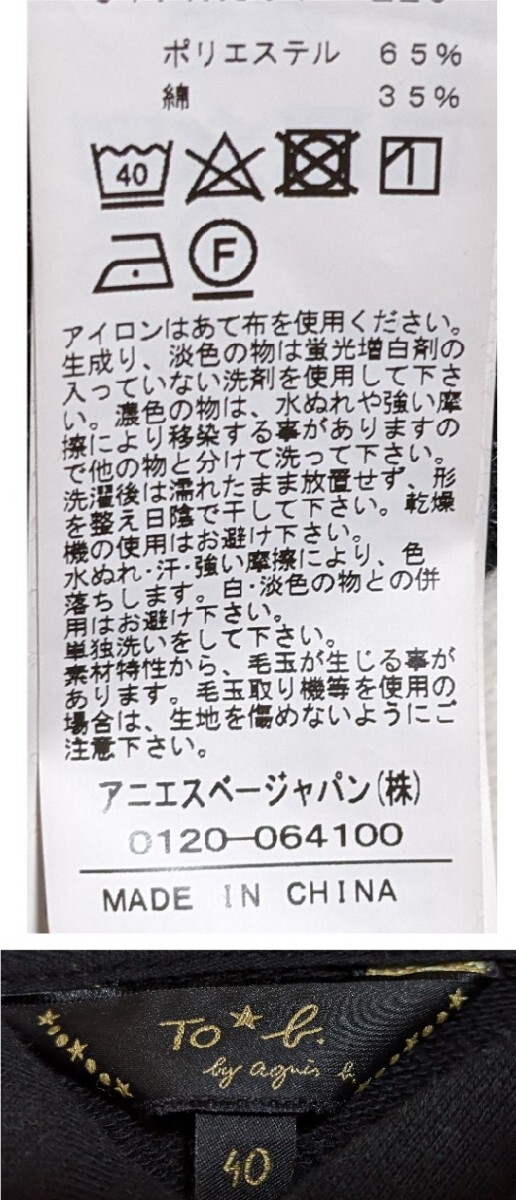 ポリエステル 65%
綿 35%
40
F
アイロンはあて布を使用ください。
生成り、淡色の物は蛍光増白剤の
入っていない洗剤を使用して下さ
い。濃色の物は、水ぬれや強い摩
擦により移染する事がありますの
で他の物と分けて洗って下さい。
洗濯後は濡れたまま放置せず、形
を整え日陰で干して下さい。乾燥
機の使用はお避け下さい。
水ぬれ・汗・強い摩擦により、色
落ちします。白・淡色の物との併
用はお避け下さい。
単独洗いをして下さい。
素材特性から、毛玉が生じる事が
あります。毛玉取り機等を使用の
場合は、生地を傷めないようにご
注意下さい。
アニエスベージャパン(株)
0120-064100
MADE IN CHINA
To★b.
by agnès b.
40